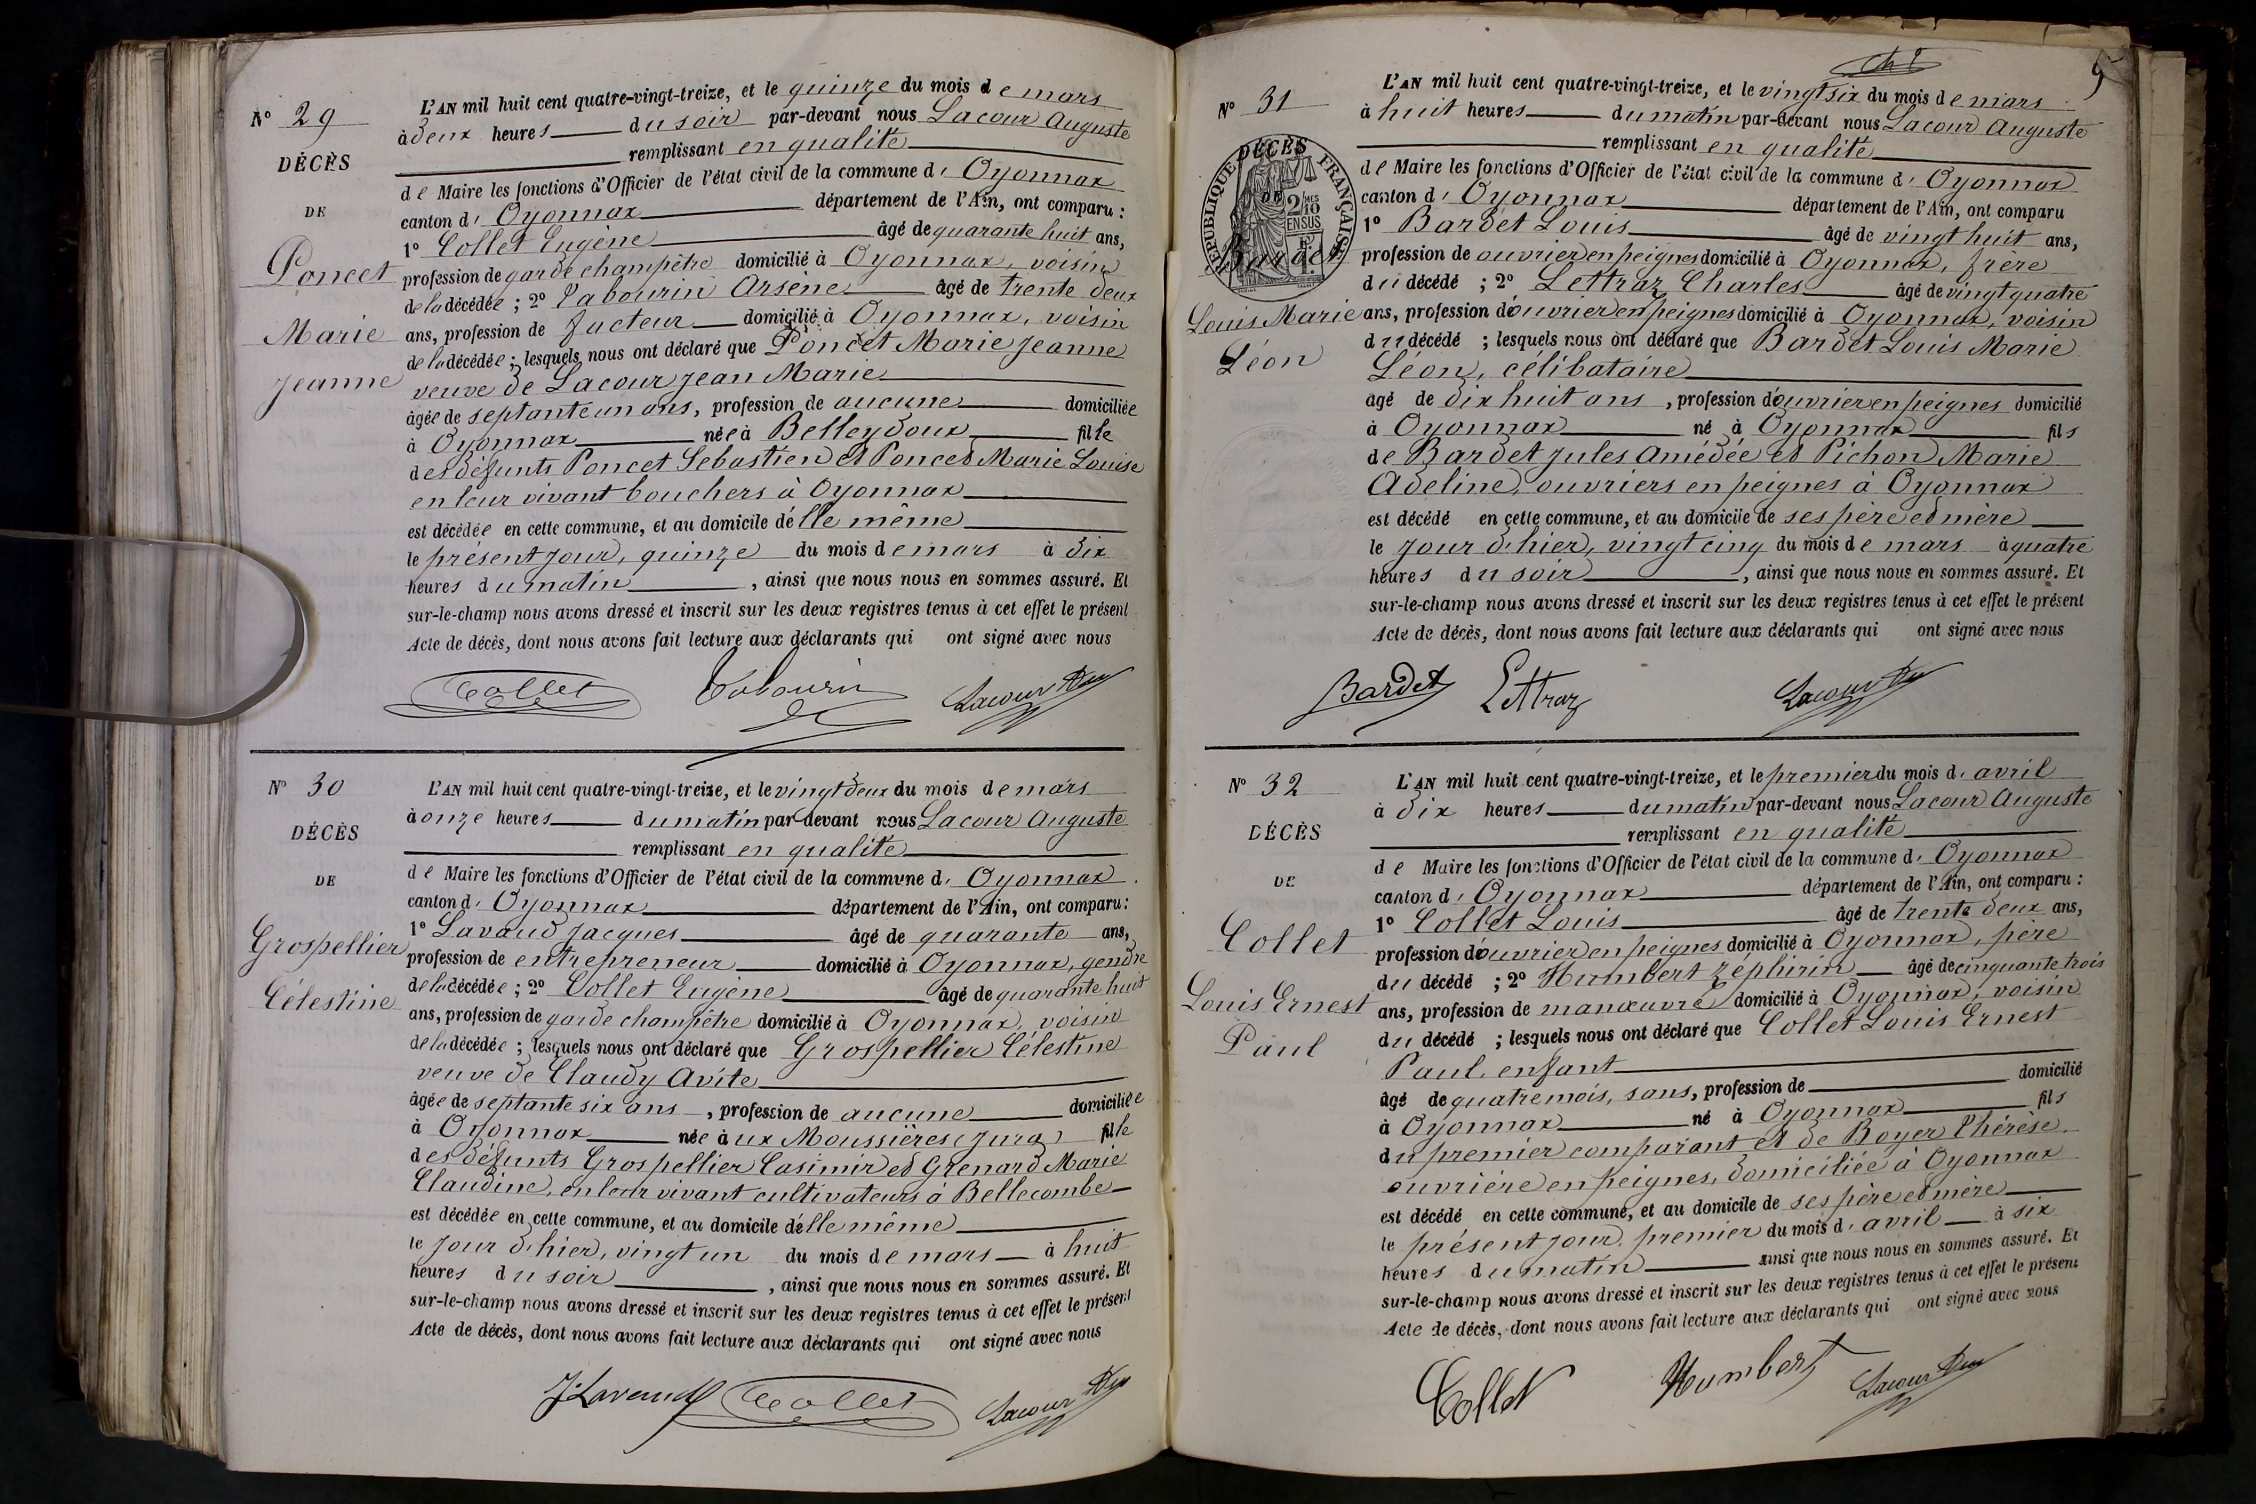 N° 29
DÉCÈS
DE
Poncet
Marie
Jeanne
L'AN mil huit cent quatre-vingt-treize, et le quinze du mois de mars
à deux heures du soir par-devant nous Lacour Auguste
remplissant en qualité
de Maire les fonctions d'Officier de l'état civil de la commune d' Oyonnax
canton d' Oyonnax département de l'Ain, ont comparu :
1° Collet Eugène âgé de quarante huit ans,
profession de garde champêtre domicilié à Oyonnax, voisin
de la décédée ; 2° Tabourin Arsène âgé de trente deux
ans, profession de facteur domicilié à Oyonnax, voisin
de la décédée ; lesquels nous ont déclaré que Poncet Marie Jeanne
veuve de Lacour Jean Marie
âgée de septante un ans, profession de aucune domiciliée
à Oyonnax née à Belleydoux fille
des défunts Poncet Sébastien et Poncet Marie Louise
en leur vivant bouchers à Oyonnax
est décédée en cette commune, et au domicile d'elle même
le présent jour, quinze du mois de mars à dix
heures du matin, ainsi que nous nous en sommes assuré. Et
sur-le-champ nous avons dressé et inscrit sur les deux registres tenus à cet effet le présent
Acte de décès, dont nous avons fait lecture aux déclarants qui ont signé avec nous
Collet Tabourin Lacour
N° 30
DÉCÈS
DE
Grospellier
Célestine
L'AN mil huit cent quatre-vingt-treize, et le vingt deux du mois de mars
à onze heures du matin par devant nous Lacour Auguste
remplissant en qualité
de Maire les fonctions d'Officier de l'état civil de la commune d' Oyonnax
canton d' Oyonnax département de l'Ain, ont comparu :
1° Lavaud Jacques âgé de quarante ans,
profession de entrepreneur domicilié à Oyonnax, gendre
de la décédée ; 2° Collet Eugène âgé de quarante huit
ans, profession de garde champêtre domicilié à Oyonnax, voisin
de la décédée ; lesquels nous ont déclaré que Grospellier Célestine
veuve de Claudy Avite
âgée de septante six ans, profession de aucune domiciliée
à Oyonnax née aux Moussières (Jura) fille
des défunts Grospellier Casimir et Grenard Marie
Claudine, en leur vivant cultivateurs à Bellecombe
est décédée en cette commune, et au domicile d'elle même
le jour d'hier, vingt un du mois de mars à huit
heures du soir, ainsi que nous nous en sommes assuré. Et
sur-le-champ nous avons dressé et inscrit sur les deux registres tenus à cet effet le présent
Acte de décès, dont nous avons fait lecture aux déclarants qui ont signé avec nous
J. Lavaud Collet Lacour
5
N° 31
DÉCÈS
DE
RÉPUBLIQUE FRANÇAISE
2/10 EN SUS
Bardet
Louis Marie
Léon
L'AN mil huit cent quatre-vingt-treize, et le vingt six du mois de mars
à huit heures du matin par-devant nous Lacour Auguste
remplissant en qualité
de Maire les fonctions d'Officier de l'état civil de la commune d' Oyonnax
canton d' Oyonnax département de l'Ain, ont comparu
1° Bardet Louis âgé de vingt huit ans,
profession de ouvrier en peignes domicilié à Oyonnax, frère
du décédé ; 2° Lettraz Charles âgé de vingt quatre
ans, profession d'ouvrier en peignes domicilié à Oyonnax, voisin
du décédé ; lesquels nous ont déclaré que Bardet Louis Marie
Léon, célibataire
âgé de dix huit ans, profession d'ouvrier en peignes domicilié
à Oyonnax né à Oyonnax fils
de Bardet Jules Amédée et Pichon Marie
Adeline, ouvriers en peignes à Oyonnax
est décédé en cette commune, et au domicile de ses père et mère
le jour d'hier, vingt cinq du mois de mars à quatre
heures du soir, ainsi que nous nous en sommes assuré. Et
sur-le-champ nous avons dressé et inscrit sur les deux registres tenus à cet effet le présent
Acte de décès, dont nous avons fait lecture aux déclarants qui ont signé avec nous
Bardet Lettraz Lacour
N° 32
DÉCÈS
DE
Collet
Louis Ernest
Paul
L'AN mil huit cent quatre-vingt-treize, et le premier du mois d' avril
à dix heures du matin par-devant nous Lacour Auguste
remplissant en qualité
de Maire les fonctions d'Officier de l'état civil de la commune d' Oyonnax
canton d' Oyonnax département de l'Ain, ont comparu :
1° Collet Louis âgé de trente deux ans,
profession d'ouvrier en peignes domicilié à Oyonnax, père
du décédé ; 2° Humbert Zéphirin âgé de cinquante trois
ans, profession de manœuvre domicilié à Oyonnax, voisin
du décédé ; lesquels nous ont déclaré que Collet Louis Ernest
Paul, enfant
âgé de quatre mois, sans, profession de domicilié
à Oyonnax né à Oyonnax fils
du premier comparant et de Boyer Thérèse
ouvrière en peignes, domiciliée à Oyonnax
est décédé en cette commune, et au domicile de ses père et mère
le présent jour, premier du mois d' avril à six
heures du matin ainsi que nous nous en sommes assuré. Et
sur-le-champ nous avons dressé et inscrit sur les deux registres tenus à cet effet le présent
Acte de décès, dont nous avons fait lecture aux déclarants qui ont signé avec nous
Collet Humbert Lacour